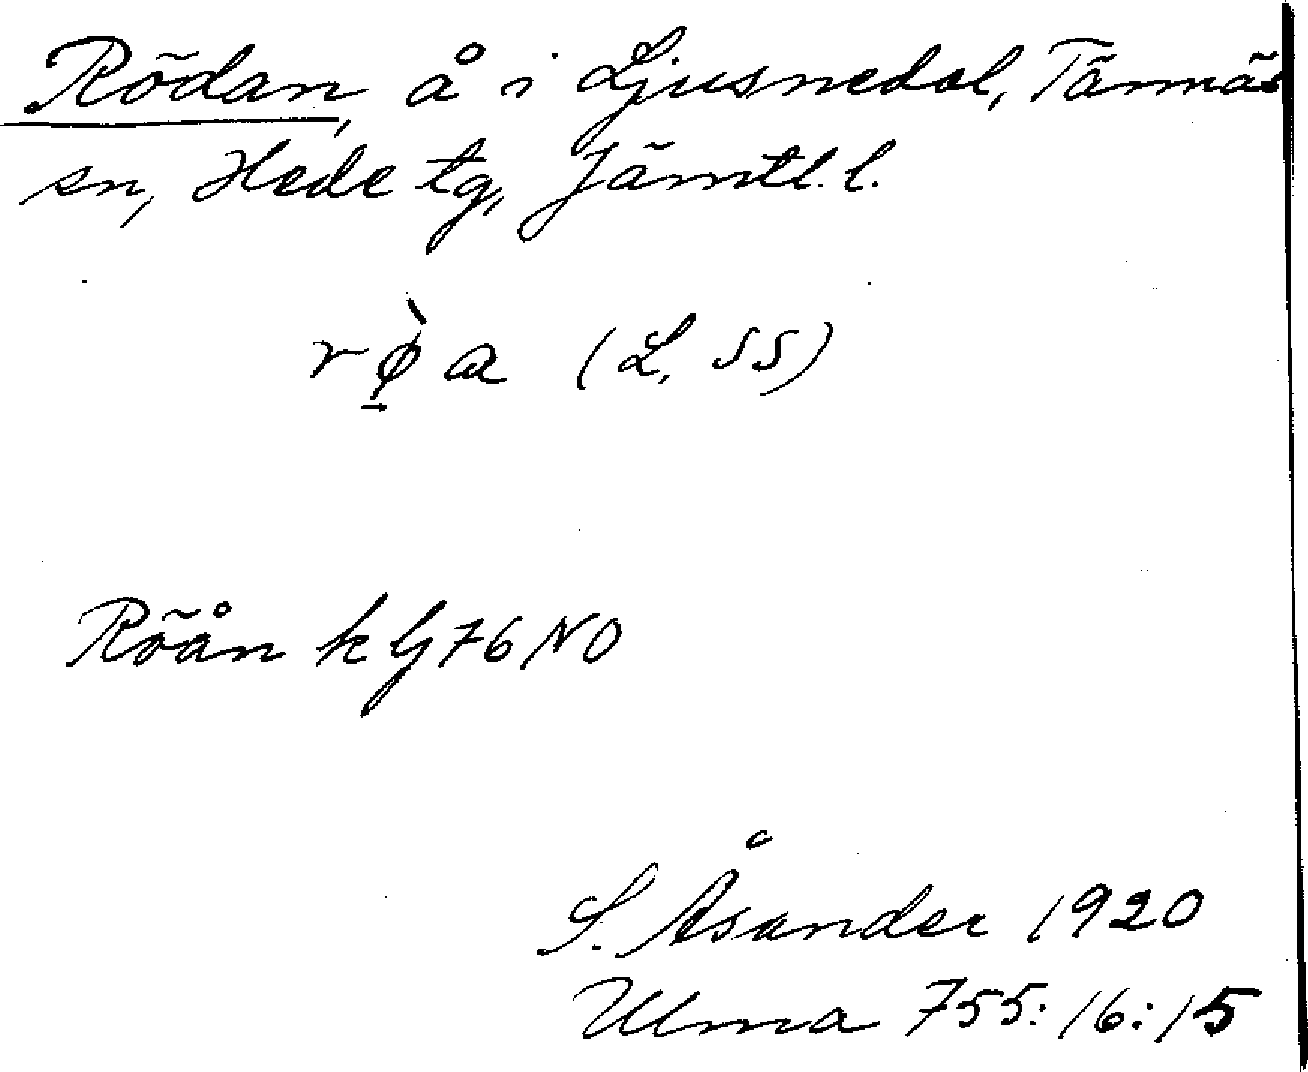 Rödan, å i Ljusnedal, Tännäs
sn, Hede tg, Jämtl. l.
rø̱̀a (L, SS)
Röån kG76NO
S. Åsander 1920
Ulma 755:16:15